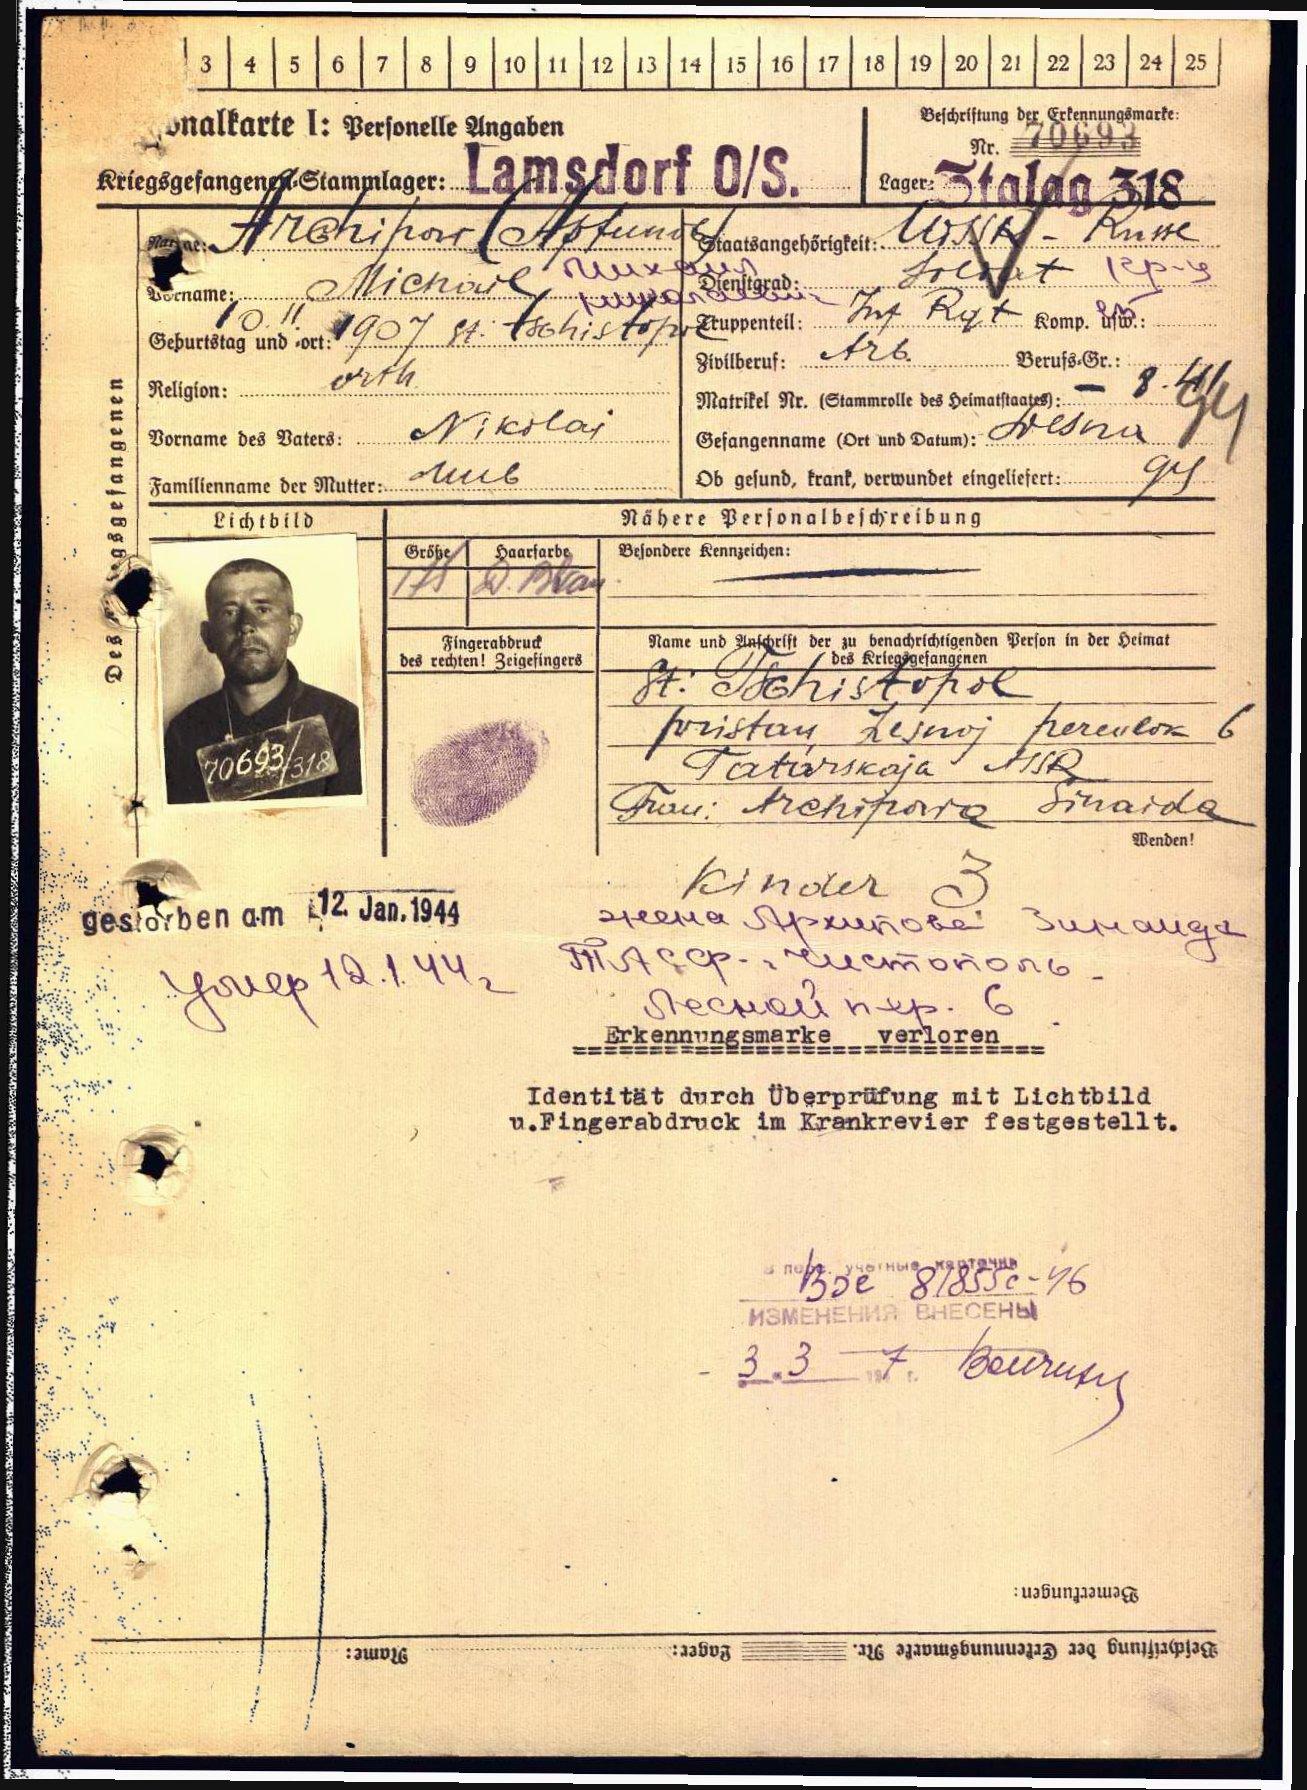 3 4 5 6 7 8 9 10 11 12 13 14 15 16 17 18 19 20 21 22 23 24 25
onalkarte I: Personelle Angaben
Beschriftung der Erkennungsmarke:
Nr. 70693
Kriegsgefangenen-Stammlager: Lamsdorf O/S.
Lager: Stalag 318
Name: Archipow
Staatsangehörigkeit: UdSSR - Russe
Vorname: Michail Михаил
Dienstgrad: Soldat кр-ц
Geburtstag und -ort: 10. II. 1907 st. Tschistopol
Truppenteil: Inf Rgt Komp. usw.:
Zivilberuf: Arb. Berufs-Gr.:
Religion: orth
Matrikel Nr. (Stammrolle des Heimatstaates): -
Vorname des Vaters: Nikolai
Gefangenname (Ort und Datum):
Familienname der Mutter:
Ob gesund, krank, verwundet eingeliefert:
Des gsgefangenen
Lichtbild
Nähere Personalbeschreibung
Größe Haarfarbe Besondere Kennzeichen:
175
70693/318
Fingerabdruck
des rechten! Zeigefingers
Name und Anschrift der zu benachrichtigenden Person in der Heimat
des Kriegsgefangenen
st: Tschistopol
pristan, Lesnoj pereulok 6
Tatarskaja ASSR
Frau: Archipowa Sinaida
Wenden!
Kinder 3
gestorben am 12. Jan. 1944
жена Архипова Зинаида
ТАССР - г. Чистополь -
Лесной пер. 6
Умер 12.1.44 г
Erkennungsmarke verloren
Identität durch Überprüfung mit Lichtbild
u.Fingerabdruck im Krankrevier festgestellt.
В перс. учетные карточки
81855с-46
ИЗМЕНЕНИЯ ВНЕСЕНЫ
3. 3 194 7 г.
Bemerkungen:
Beschriftung der Erkennungsmarke Nr. Lager: Name: